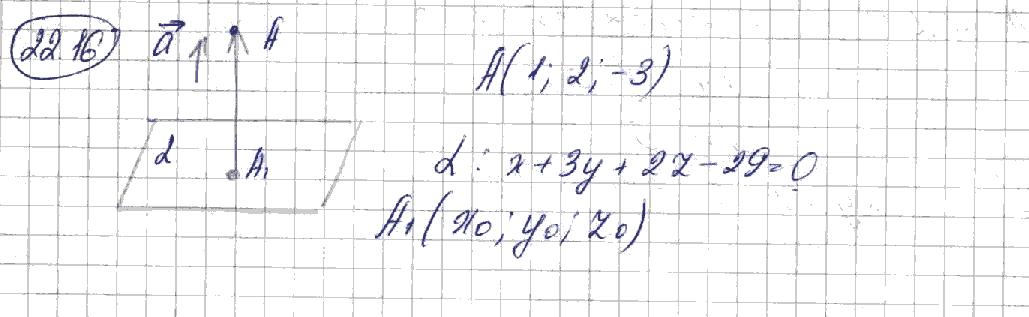 22.16
a⃗ A
A(1; 2; -3)
α A₁
α: x+3y+2z-29=0
A₁(x₀; y₀; z₀)